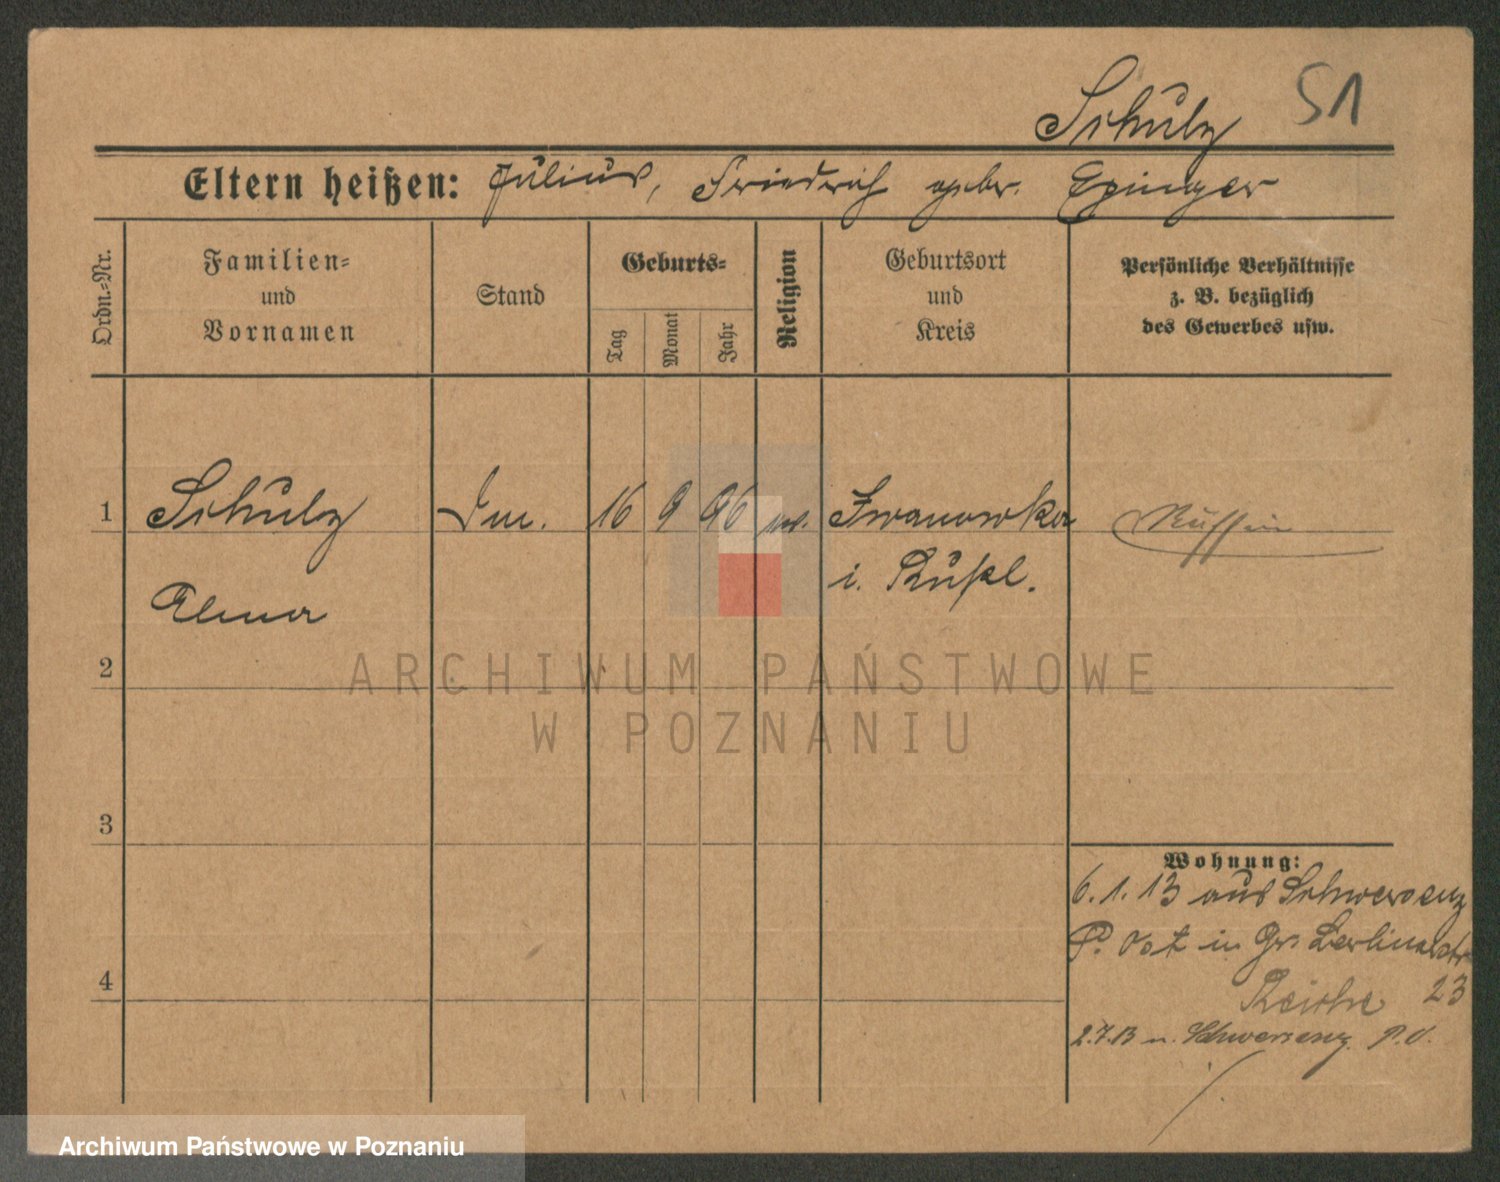 Schulz 51
Eltern heißen: Julius, Friedrich gebr. Eginger
Ordn.-Nr.
Familien-
und
Vornamen
Stand
Geburts-
Tag
Monat
Jahr
Religion
Geburtsort
und
Kreis
Persönliche Verhältnisse
z. B. bezüglich
des Gewerbes usw.
1 Schulz 16 9 96 Iwanowka Russin
i. Rußl.
2
3
4
Wohnung:
6.1.13 aus Schwersenz
P. Ost in Gr. Berlinerstr
Reiche 23
2.7.13 n. Schwersenz P.O.
ARCHIWUM PAŃSTWOWE
W POZNANIU
Archiwum Państwowe w Poznaniu